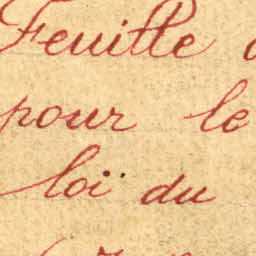 Feuille d
pour le
loi du